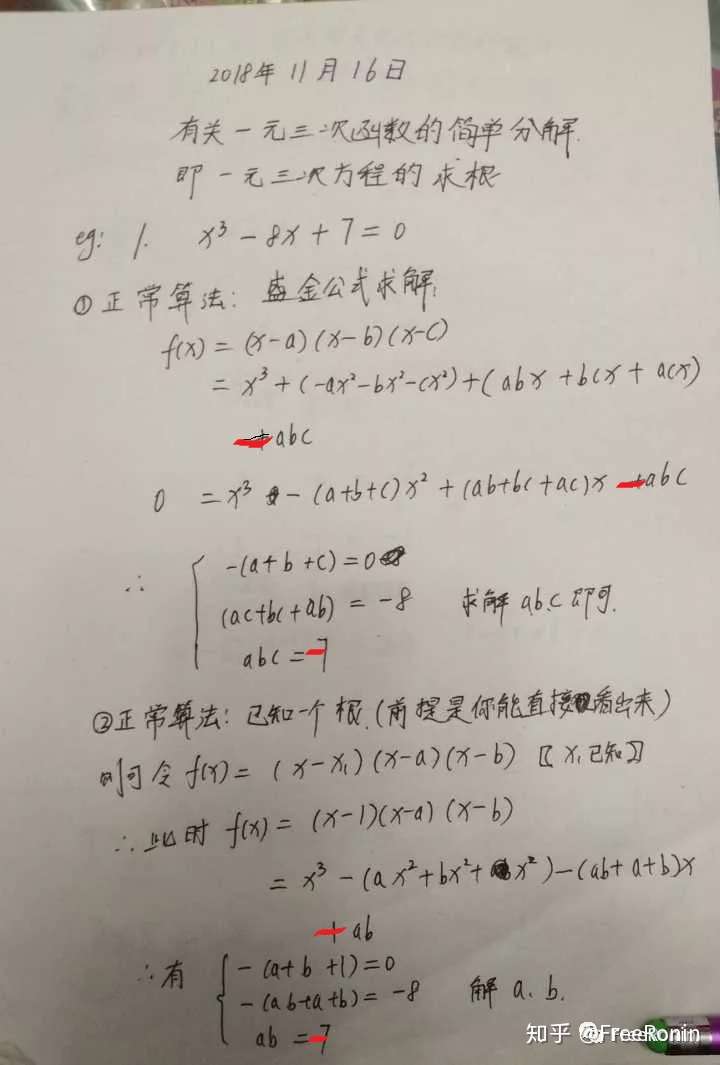 2018年11月16日
有关一元三次函数的简单分解.
即一元三次方程的求根
eg: 1. x³-8x+7=0
①正常算法: 盛金公式求解:
f(x) = (x-a)(x-b)(x-c)
= x³+(-ax²-bx²-cx²)+(abx+bcx+acx)
-abc
0 = x³-(a+b+c)x²+(ab+bc+ac)x-abc
∴ -(a+b+c)=0
(ac+bc+ab) = -8 求解abc即可.
abc=-7
②正常算法: 已知一个根.(前提是你能直接看出来)
则可令f(x)= (x-x₁)(x-a)(x-b) 〖x₁已知〗
∴此时 f(x)= (x-1)(x-a)(x-b)
= x³-(ax²+bx²+x²)-(ab+a+b)x
-ab
∴有 -(a+b+1)=0
-(ab+a+b)=-8 解a.b.
ab=-7
知乎 @FreeRonin